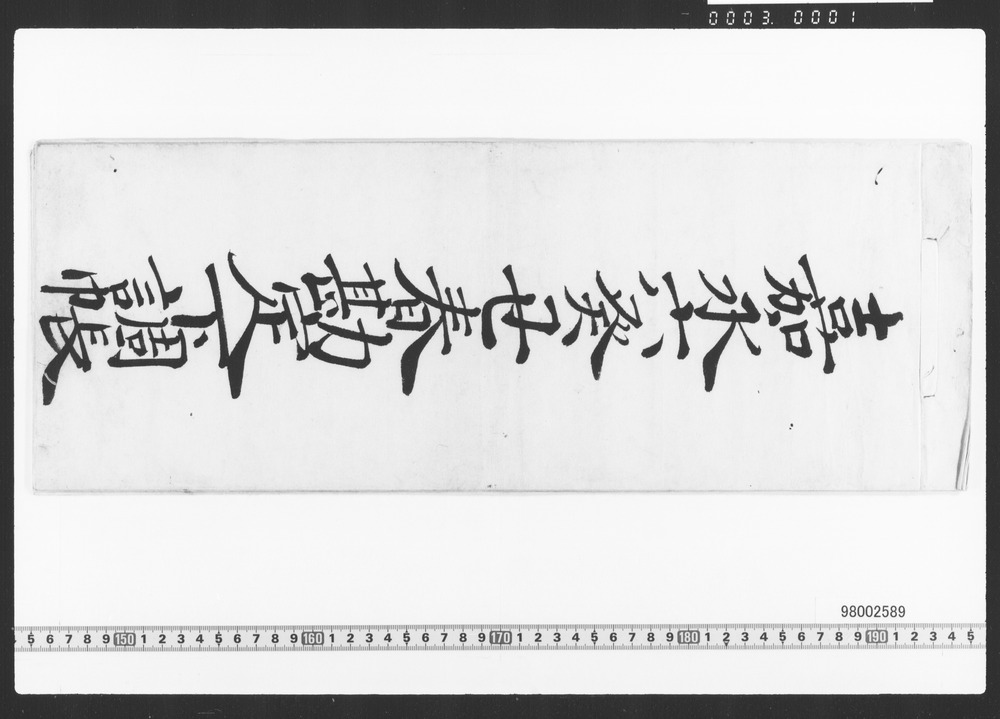 0003. 0001
嘉永六癸丑春勘定下調帳
98002589
5 6 7 8 9 150 1 2 3 4 5 6 7 8 9 160 1 2 3 4 5 6 7 8 9 170 1 2 3 4 5 6 7 8 9 180 1 2 3 4 5 6 7 8 9 190 1 2 3 4 5